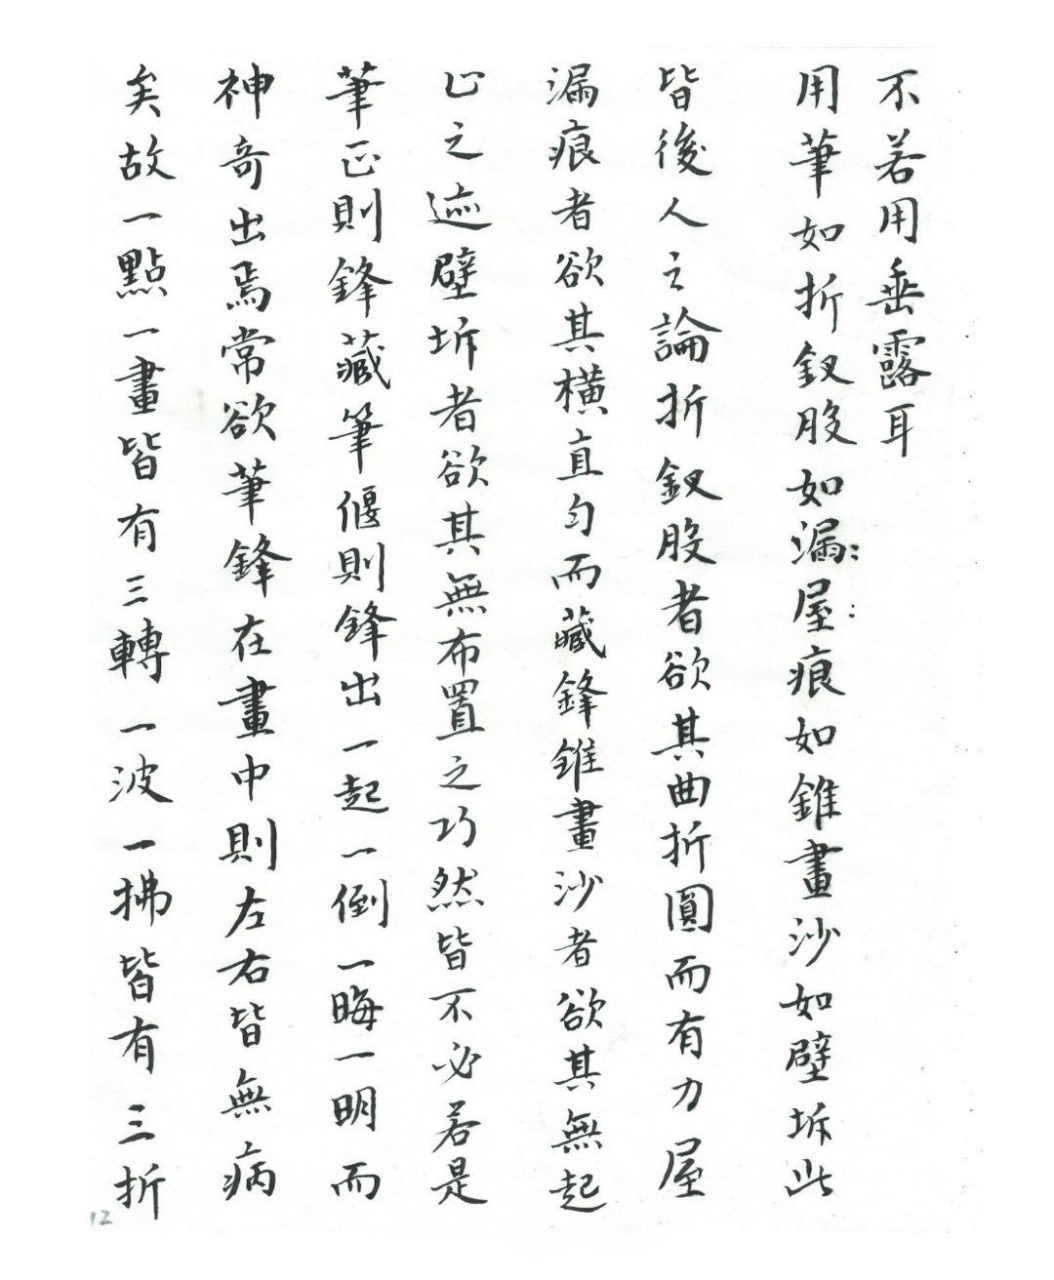 不若用垂露耳
用筆如折釵股如漏屋痕如錐畫沙如壁坼此
皆後人之論折釵股者欲其曲折圓而有力屋
漏痕者欲其橫直勻而藏鋒錐畫沙者欲其無起
止之迹壁坼者欲其無布置之巧然皆不必若是
筆正則鋒藏筆偃則鋒出一起一倒一晦一明而
神奇出焉常欲筆鋒在畫中則左右皆無病
矣故一點一畫皆有三轉一波一拂皆有三折
12